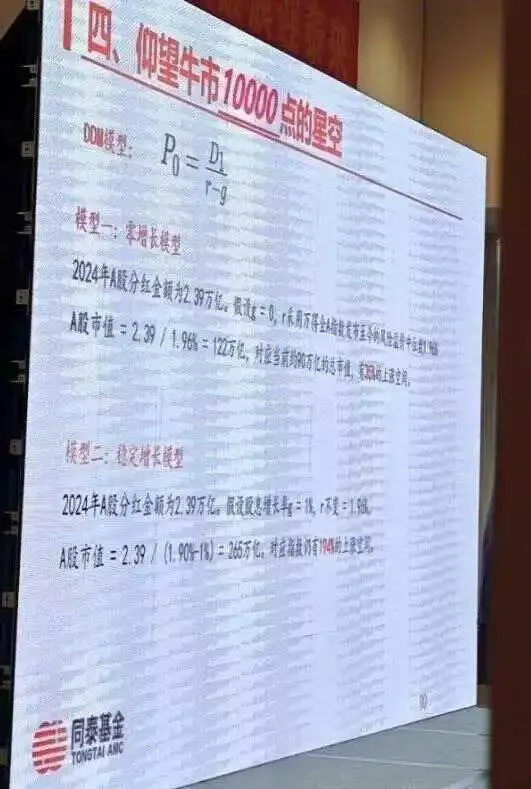 四、仰望牛市10000点的星空
DDM模型: P₀ = D1 / r-g
模型一：零增长模型
2024年A股分红金额为2.39万亿。假设g = 0, r采用万得全A指数发布至今的风险溢价中位数1.96%
A股市值 = 2.39 / 1.96% = 122万亿, 对应当前约90万亿的总市值, 有35%的上涨空间。
模型二：稳定增长模型
2024年A股分红金额为2.39万亿。假设股息增长率g = 1%, r不变 = 1.96%,
A股市值 = 2.39 / (1.90%-1%) = 265万亿, 对应指数仍有194%的上涨空间。
10
同泰基金
TONGTAI AMC